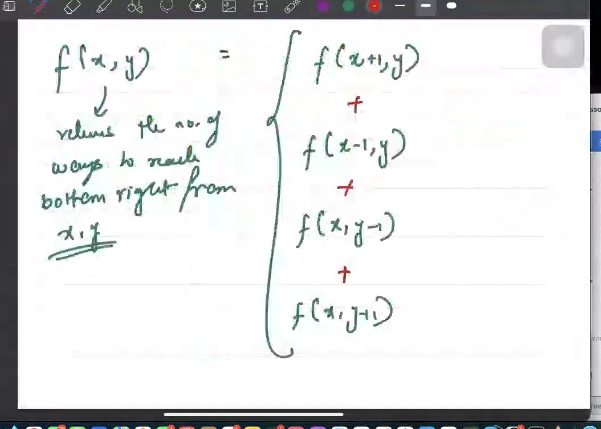 f(x, y) = f(x+1, y)
+
f(x-1, y)
+
f(x, y-1)
+
f(x, y+1)
returns the no. of
ways to reach
bottom right from
x, y